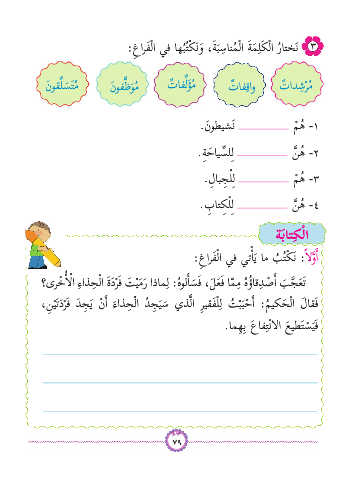 ٣ نَختارُ الْكَلِمَةَ الْمُناسِبَةَ، وَنَكْتُبُها فِي الْفَراغِ:
مُرْشِداتٌ واقِفاتٌ مُؤَلِّفاتٌ مُوَظَّفونَ مُتَسَلِّقونَ
١- هُمْ ............ نَشيطونَ.
٢- هُنَّ ............ لِلسِّياحَةِ.
٣- هُمْ ............ لِلْجِبالِ.
٤- هُنَّ ............ لِلْكِتابِ.
الْكِتابَة
أَوَّلاً: نَكْتُبُ ما يَأْتي في الْفَراغِ:
تَعَجَّبَ أَصْدِقاؤُهُ مِمّا فَعَلَ، فَسَأَلوهُ: لِماذا رَمَيْتَ فَرْدَةَ الْحِذاءِ الْأُخْرى؟
فَقالَ الْحَكيمُ: أَحْبَبْتُ لِلْفَقيرِ الَّذي سَيَجِدُ الْحِذاءَ أَنْ يَجِدَ فَرْدَتَيْنِ،
فَيَسْتَطيعَ الانْتِفاعَ بِهِما.
٧٩